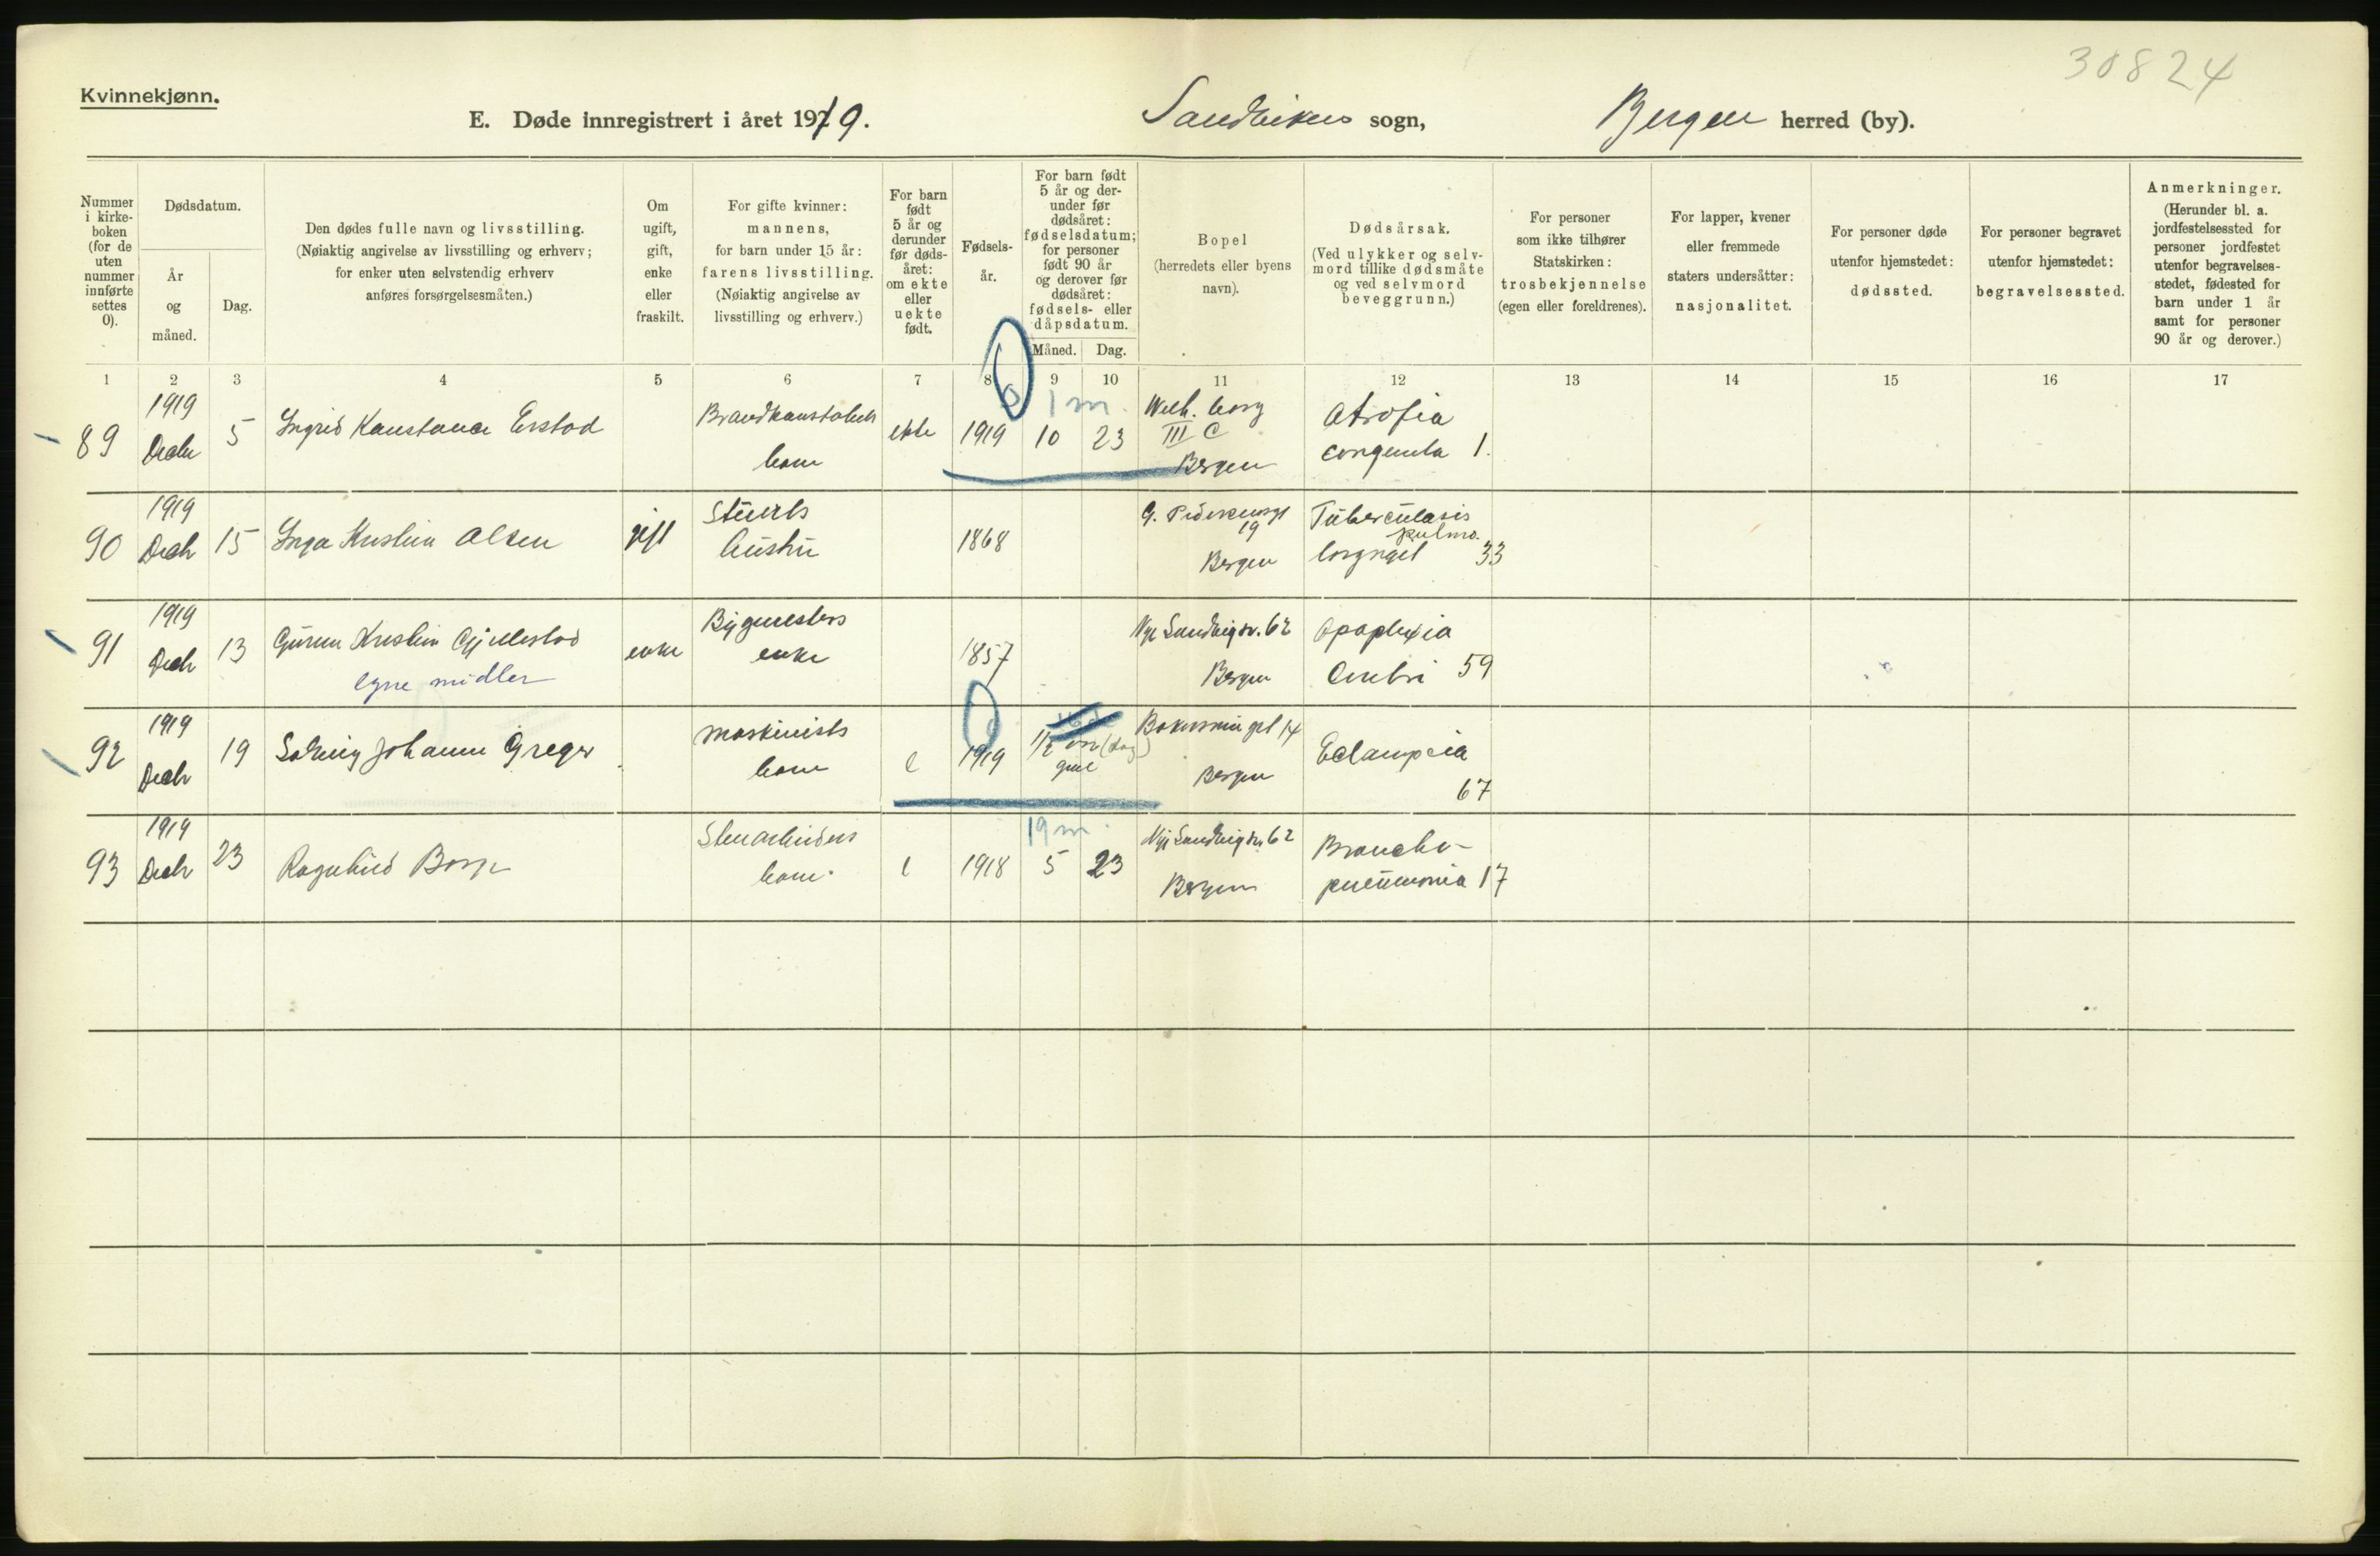 30824
Kvinnekjønn.
E. Døde innregistrert i året 1919. Sandvikens sogn, Bergen herred (by).
Nummer i kirkeboken (for de uten nummer innførte settes 0).
Dødsdatum.
År og måned.
Dag.
Den dødes fulle navn og livsstilling.
(Nøiaktig angivelse av livsstilling og erhverv;
for enker uten selvstendig erhverv
anføres forsørgelsesmåten.)
Om ugift, gift, enke eller fraskilt.
For gifte kvinner:
mannens,
for barn under 15 år:
farens livsstilling.
(Nøiaktig angivelse av
livsstilling og erhverv.)
For barn født 5 år og derunder før dødsåret: om ekte eller uekte født.
Fødselsår.
For barn født 5 år og derunder før dødsåret: fødselsdatum; for personer født 90 år og derover før dødsåret: fødsels- eller dåpsdatum.
Måned. Dag.
Bopel
(herredets eller byens
navn).
Dødsårsak.
(Ved ulykker og selvmord tillike dødsmåte og ved selvmord beveggrunn.)
For personer
som ikke tilhører
Statskirken:
trosbekjennelse
(egen eller foreldrenes).
For lapper, kvener
eller fremmede
staters undersåtter:
nasjonalitet.
For personer døde
utenfor hjemstedet:
dødssted.
For personer begravet
utenfor hjemstedet:
begravelsessted.
Anmerkninger.
(Herunder bl. a.
jordfestelsessted for
personer jordfestet
utenfor begravelses-
stedet, fødested for
barn under 1 år
samt for personer
90 år og derover.)
1 2 3 4 5 6 7 8 9 10 11 12 13 14 15 16 17
89 1919 Decbr 5 Ingrid Konstance Erstad Brandkonstabels barn ekte 1919 0 1 m. 10 23 Welh. borg III C Bergen Atrofia congenita 1.
90 1919 Decbr 15 Inga Kristine Olsen gift Stuerts hustru 1868 G. Pedersensgt 19 Bergen Tuberculosis pulmo. laryngel 33
91 1919 Decbr 13 Guren Kristine Gjellestad egne midler enke Bygmesters enke 1857 Nye Sandvigsv. 62 Bergen Apoplexia Cerebri 59
92 1919 Decbr 19 Solveig Johanne Greger Maskinists barn e 1919 0 1/2 (dag) gml Bergen Eclampsia 67
93 1919 Decbr 23 Ragnhild Borge Stenarbeiders barn. e 1918 19 m. 5 23 Nye Sandvigsv. 62 Bergen Broncho-pneumonia 17